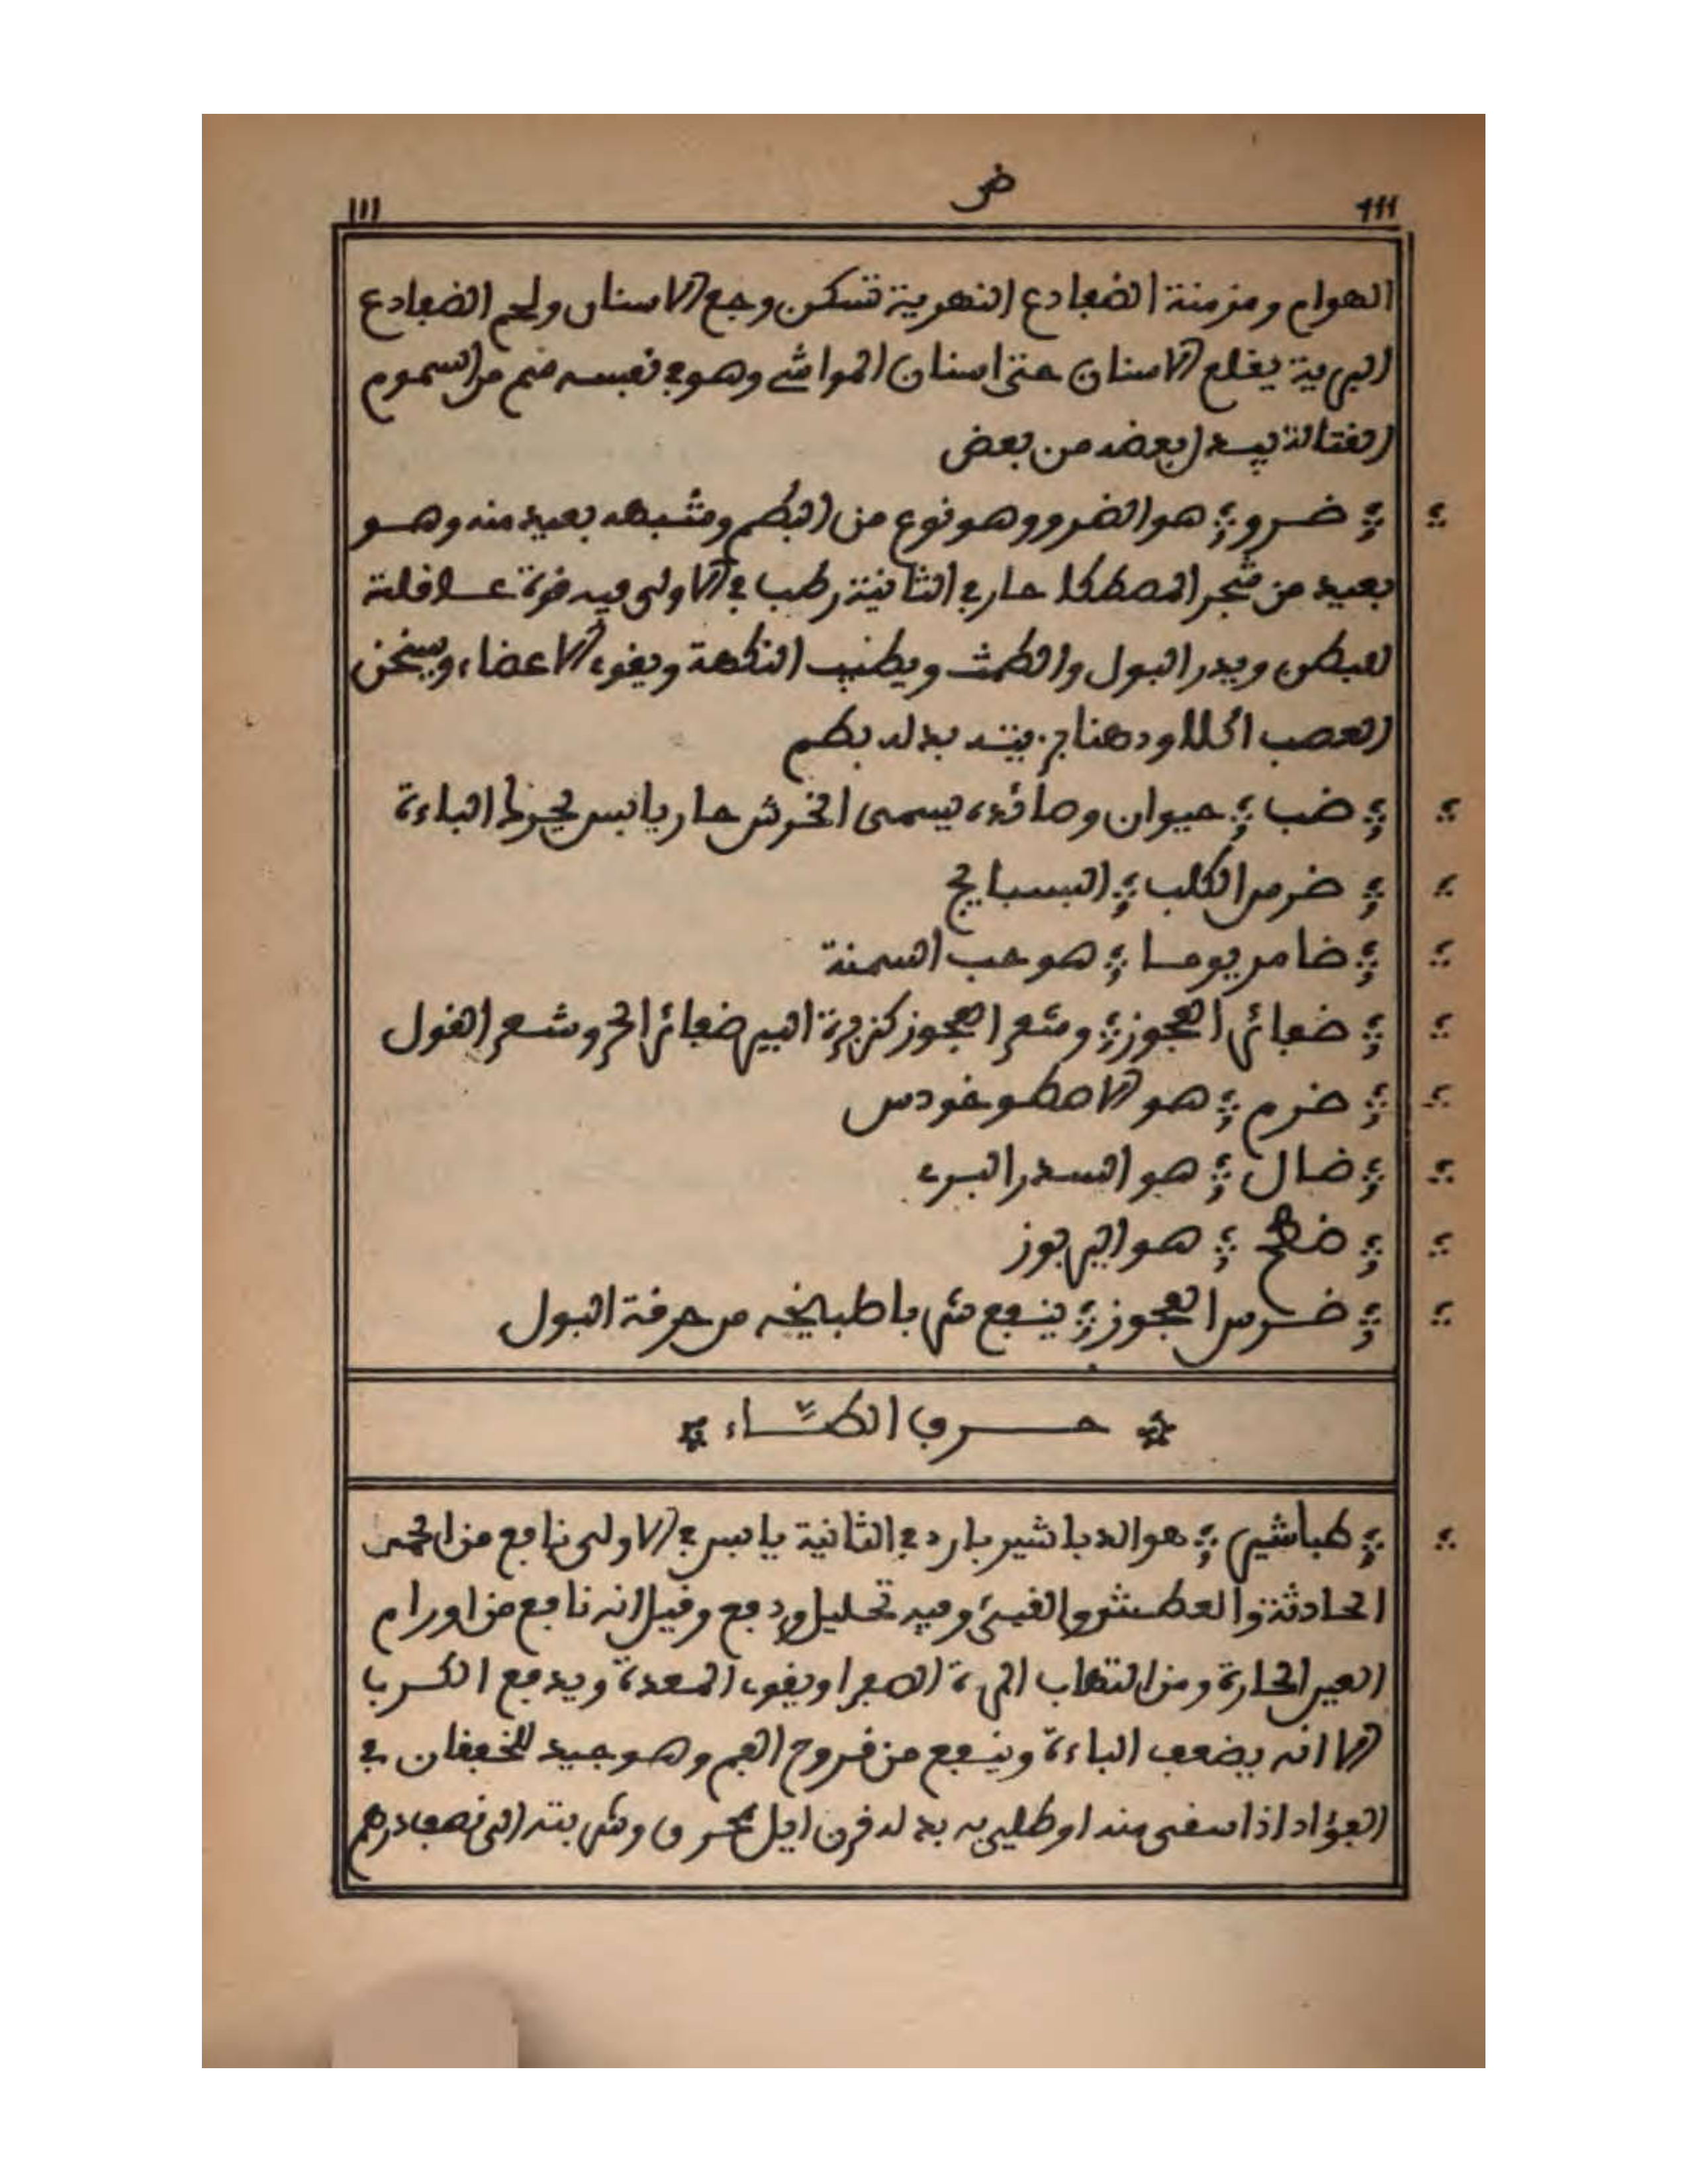 111 ض 111
الهوام ومزمنة الضفادع النهرية تسكن وجع الاسنان ولحم الضفادع
البرية يقلع الاسنان حتى اسنان المواشي وهو في نفسه سم من السموم
القتالة بعضه من بعض
ضرو هو الضرو وهو نوع من البطم وشبهه بعيد منه وهو
بعيد من شجر المصطكا حار في الثانية رطب في الاولى فيه قوة
للبطن ويدر البول والطمث ويطيب النكهة ويقوي الاعضاء ويسخن
العصب بدله بطم
ضب حيوان وماؤه يسمى الخرش حار يابس يحرك الباءة
ضرس الكلب البسبايج
ضامر يوما هو حب السمنة
ضفائر العجوز وشعر العجوز كزبرة البير ضفائر الجن وشعر الغول
ضرم هو الاسطوخودس
ضال هو السدر البري
هو البربوز
ضرس العجوز ينفع شربا طبيخه من حرقة البول
حرف الطاء
طباشير هو الدباشير بارد في الثانية يابس في الاولى نافع من الحمى
الحادثة والعطش والقيئ وفيه تحليل ودفع وقيل انه نافع من اورام
العين الحارة ومن التهاب المرة الصفرا ويقوي المعدة ويدفع الكرب
الا انه يضعف الباءة وينفع من قروح الفم وهو جيد للخفقان في
الفؤاد اذا سقي منه او طلي به بدله قرن ايل محروق وشربته الى نصف درهم